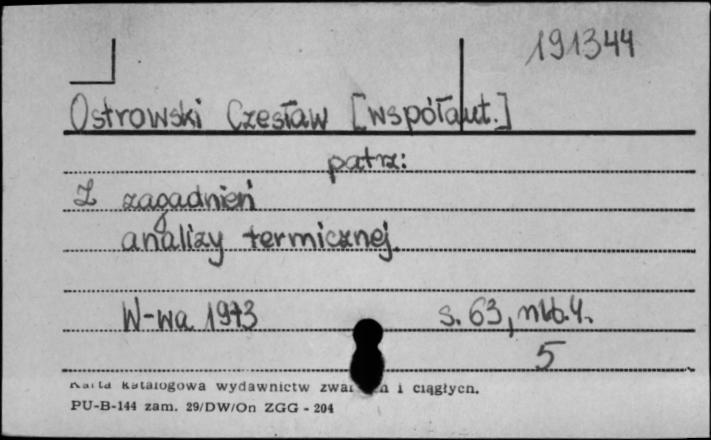 191344
Ostrowski Czesław [współaut.]
patrz:
Z zagadnień
analizy termicznej.
W-wa 1973 s. 63, nlb. 4.
5
Karta katalogowa wydawnictw i ciągłych.
PU-B-144 zam. 29/DW/On ZGG - 204